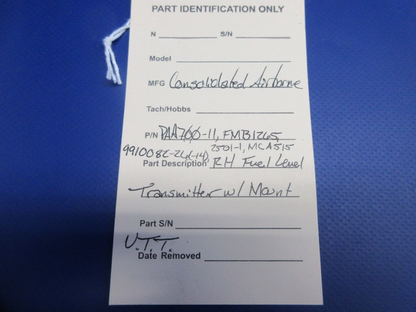 PART IDENTIFICATION ONLY
N S/N
Model
MFG Consolidated Airborne
Tach/Hobbs
P/N PAA700-11, FMB1265,
9910082-26(-14), 2501-1, MCA515
Part Description RH Fuel Level
Transmitter w/ Mount
Part S/N
U.T.T.
Date Removed